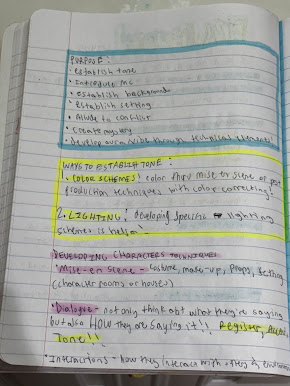 PURPOSE:
• establish tone
• Introduce MC
• establish background
• Establish setting
• Allude to conflict
• create mystery
• Develop aura/vibe through technical elements
WAYS TO ESTABLISH TONE:
• COLOR SCHEMES: color thru mise en scene or post
production techniques with color correcting!
2. LIGHTING: developing specific lighting
schemes is
DEVELOPING CHARACTERS TECHNIQUES
• Mise-en scene - costume, make-up, props, setting
(character rooms or houses)
• Dialogue - not only think abt what they're saying
but also HOW they are saying it!! Register, Accent
Tone!!
• Interactions - how they interact